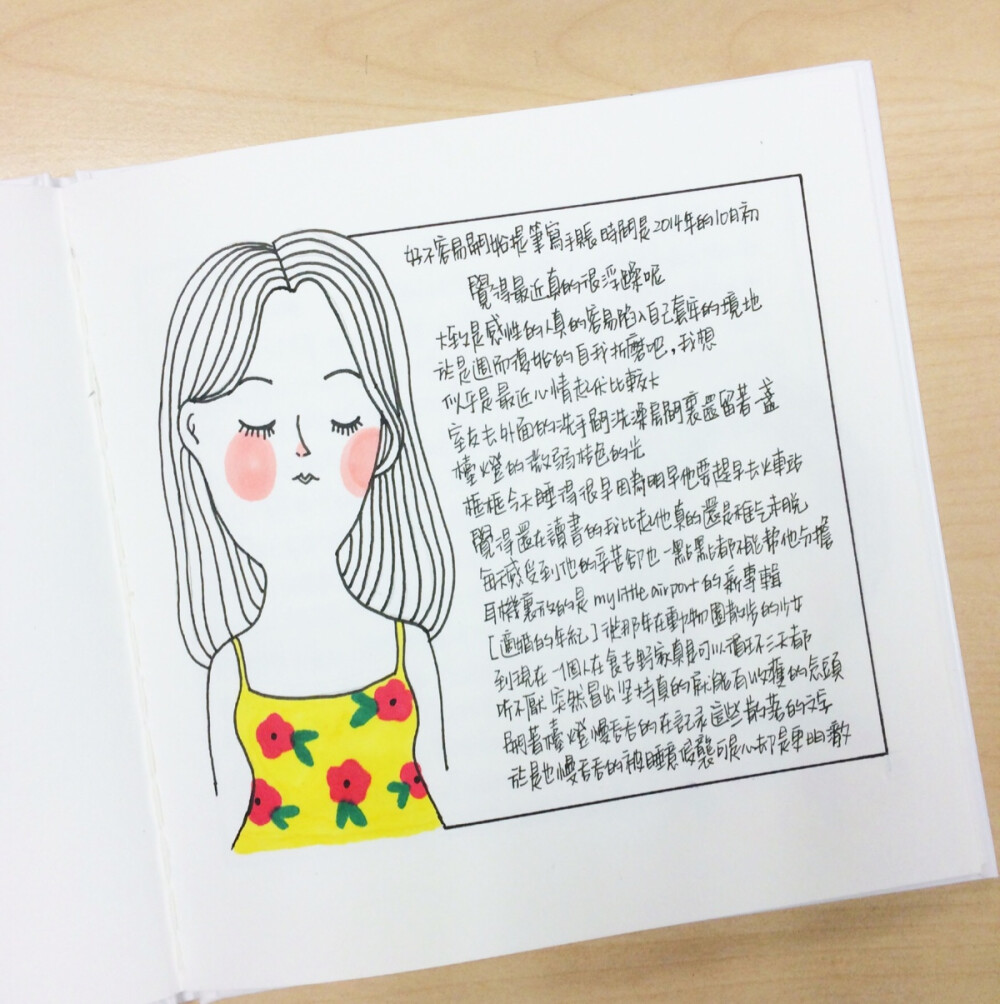 好不容易開始提筆寫手賬時間是2014年的10月初
覺得最近真的很浮躁呢
大致是感性的人真的容易陷入自己套牢的境地
於是週而復始的自我折磨吧，我想
似乎是最近心情起伏比較大
室友去外面的洗手間洗澡房間裏還留着一盞
檯燈的微弱桔色的光
框框今天睡得很早因為明早他要趕早去火車站
覺得還在讀書的我比起他真的還是稚气未脱
每天感受到他的辛苦卻也一點點都不能幫他分擔
耳機裏放的是my little airport的新專輯
[適婚的年紀]從那年在動物園散步的少女
到現在一個人在食吉野家真是可以循环三天都
听不厭 突然冒出坚持真的就能有收獲的念頭
開着檯燈慢吞吞的在記录這些散落的文字
於是也慢吞吞的被睡意侵襲可是心却是更明澈